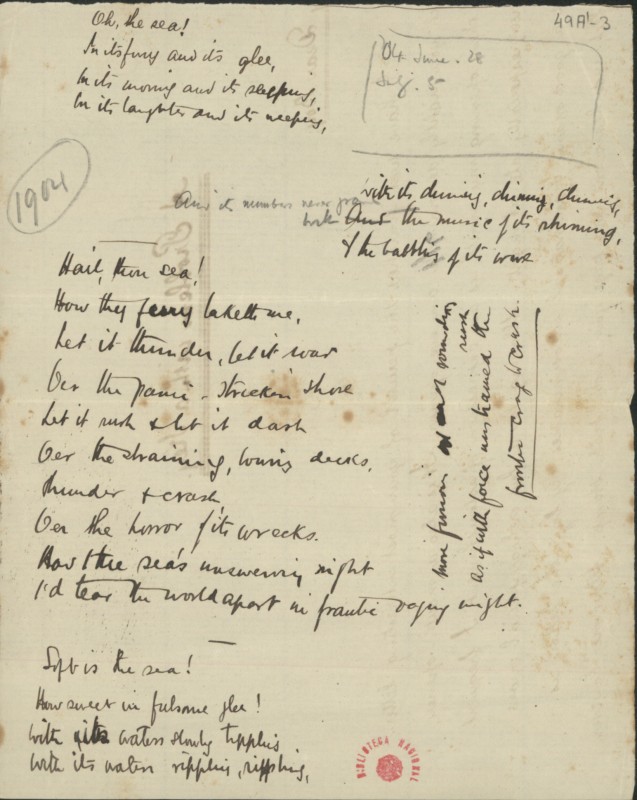 49A1-3
Oh, the sea!
In its fury and its glee,
In its moving and its sleeping,
In its laughter and its weeping,
04 June. 28
July. 5
1904
With its dinning, dinning,
And its numbers never
with And the music of its rhiming,
& the babbling of its
Hail, thou sea!
How thy taketh me,
Let it thunder, let it roar
Oer the panic-stricken shore
Let it rush & let it dash
Oer the straining, decks,
thunder & crash
Oer the horror of its wrecks.
Had I the sea's unswerving might
I'd tear the world apart in frantic raging might.
more furious sounding
rush
as if with force unstrained the
frantic & crash.
Soft is the sea!
How sweet in fulsome glee!
With its waters slowly tippling
With its waters rippling, rippling,
BIBLIOTECA NACIONAL